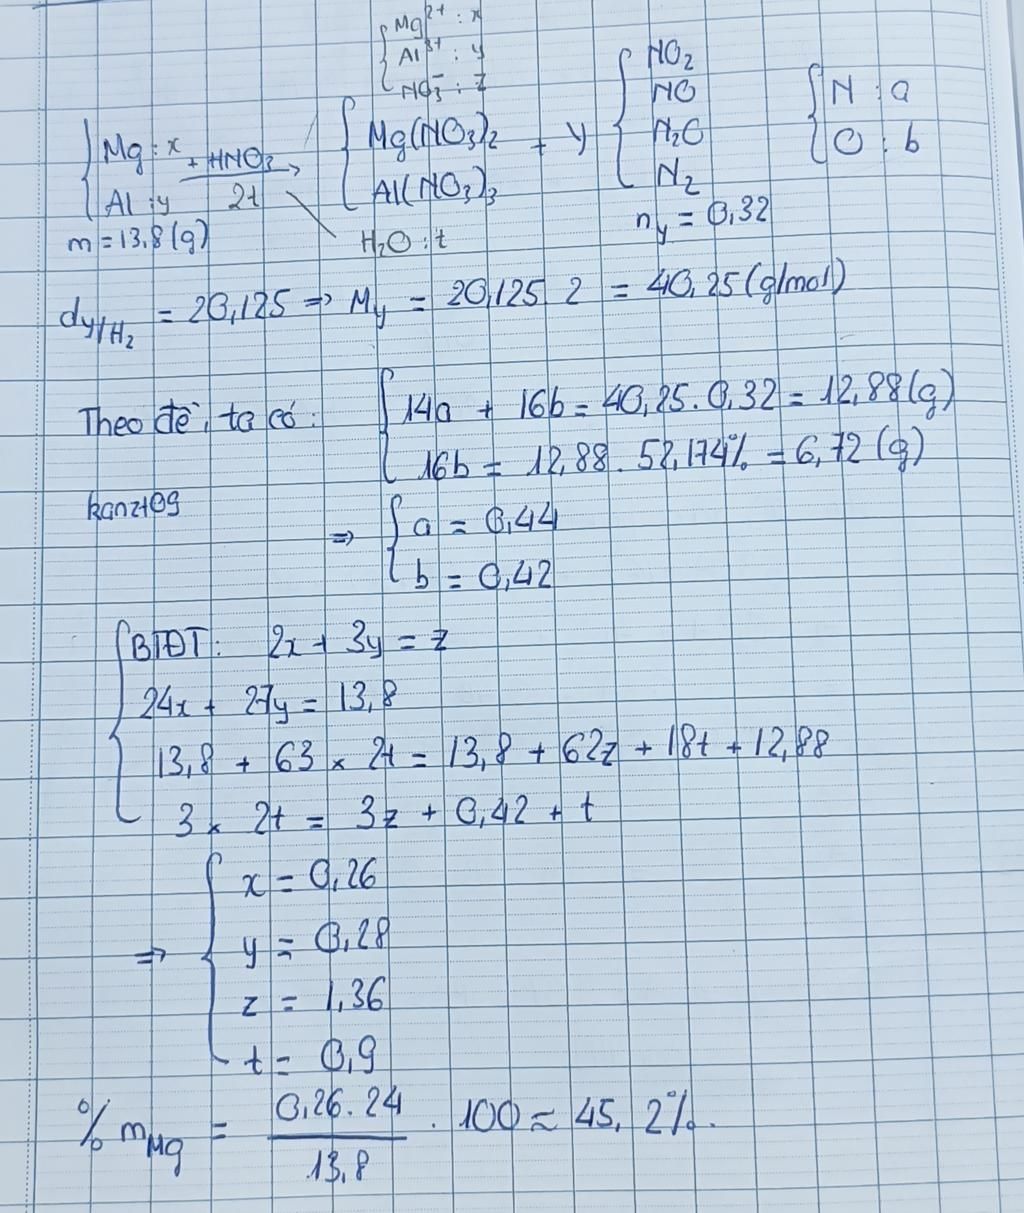 { Mg²⁺ : x
Al³⁺ : y
NO₃⁻ : z
{ Mg : x
Al : y
m = 13,8 (g)
+ HNO₃
2t
{ Mg(NO₃)₂
Al(NO₃)₃
H₂O : t
+ Y { NO₂
NO
N₂O
N₂
n_y = 0,32
{ N : a
O : b
dy/H₂ = 20,125 => M_y = 20,125 2 = 40,25 (g/mol)
Theo đề, ta có: { 14a + 16b = 40,25 . 0,32 = 12,88 (g)
16b = 12,88 . 52,174% = 6,72 (g)
kanzt09
=> { a = 0,44
b = 0,42
{ BTĐT: 2x + 3y = z
24x + 27y = 13,8
13,8 + 63 × 2t = 13,8 + 62z + 18t + 12,88
3 × 2t = 3z + 0,42 + t
=> { x = 0,26
y = 0,28
z = 1,36
t = 0,9
% m_Mg = 0,26 . 24 / 13,8 . 100 ≈ 45,2%.